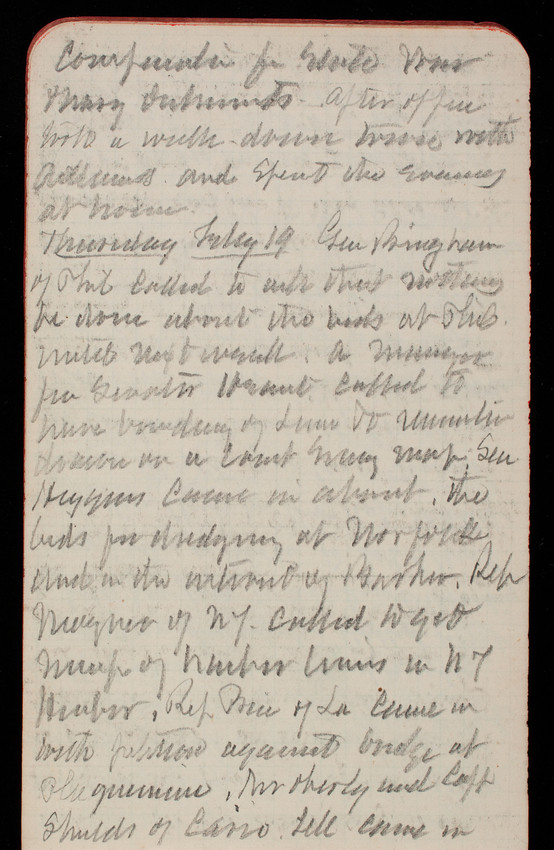 for State
after office
took a walk down town with
and spent the evening
at home.
Thursday Feby 19 Gen Bingham
of Phil called to ask that nothing
be done about the bids at Phil.
until next week. A messenger
for Senator called to
have boundary of
drawn on a Coast Survey map. Gen
Huggins came in about the
bids for dredging at Norfolk
and in the interest of Barker. Rep
of NY. called to get
maps of harbor lines in NY
Harbor, Rep Price of La came in
with petition against bridge at
Plaquemine, Mr Oberly and Capt
Shields of Cairo Ill came in